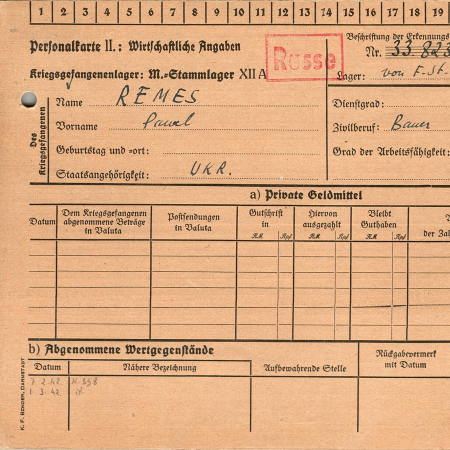 1 2 3 4 5 6 7 8 9 10 11 12 13 14 15 16 17 18 19
Personalkarte II.: Wirtschaftliche Angaben
Russe
Beschriftung der Erkennungs
Nr. 33 823
Kriegsgefangenenlager: M.-Stammlager XII A
Lager: von F-St-
Des Kriegsgefangenen
Name REMES
Vorname Pawel
Geburtstag und -ort:
Staatsangehörigkeit: UKR.
Dienstgrad:
Zivilberuf: Bauer
Grad der Arbeitsfähigkeit:
a) Private Geldmittel
Datum
Dem Kriegsgefangenen abgenommene Beträge in Valuta
Postsendungen in Valuta
Gutschrift in
RM Rpf
Hiervon ausgezahlt
RM Rpf
Bleibt Guthaben
RM Rpf
der Zah
b) Abgenommene Wertgegenstände
Datum
Nähere Bezeichnung
Aufbewahrende Stelle
Rückgabevermerk mit Datum
7. 2. 42. K. 398
1. 3. 42
K. F. BENDER, DARMSTADT